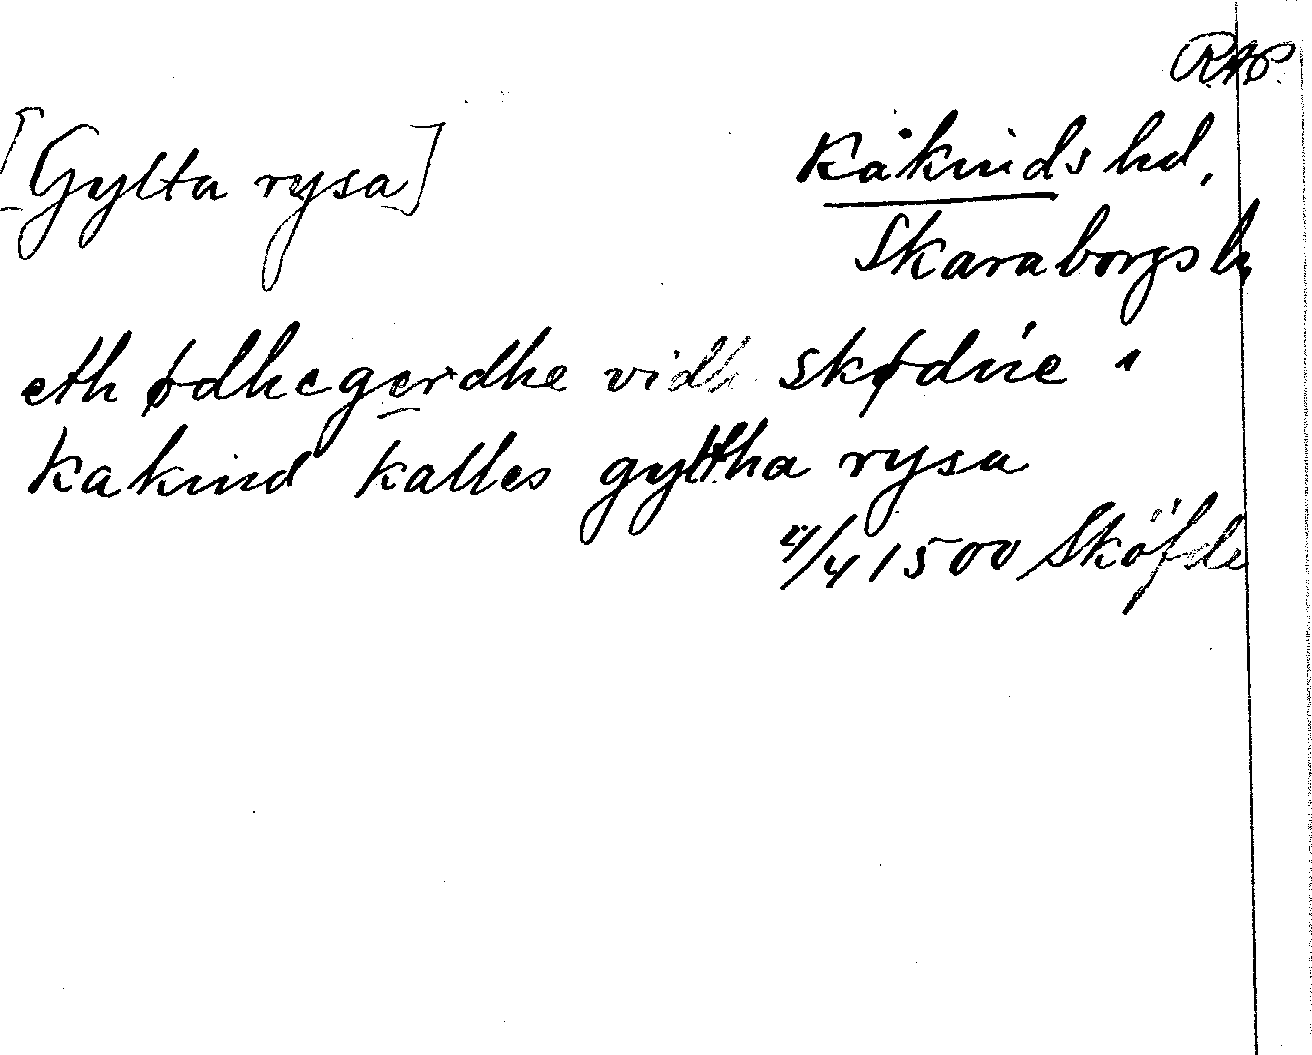 RAP.
[Gylta rysa]
Kåkinds hd,
Skaraborgs l,
eth ødhegerdhe vidh skødve i
kakind kalles gyltha rysa
4/4 1500 Sköfde